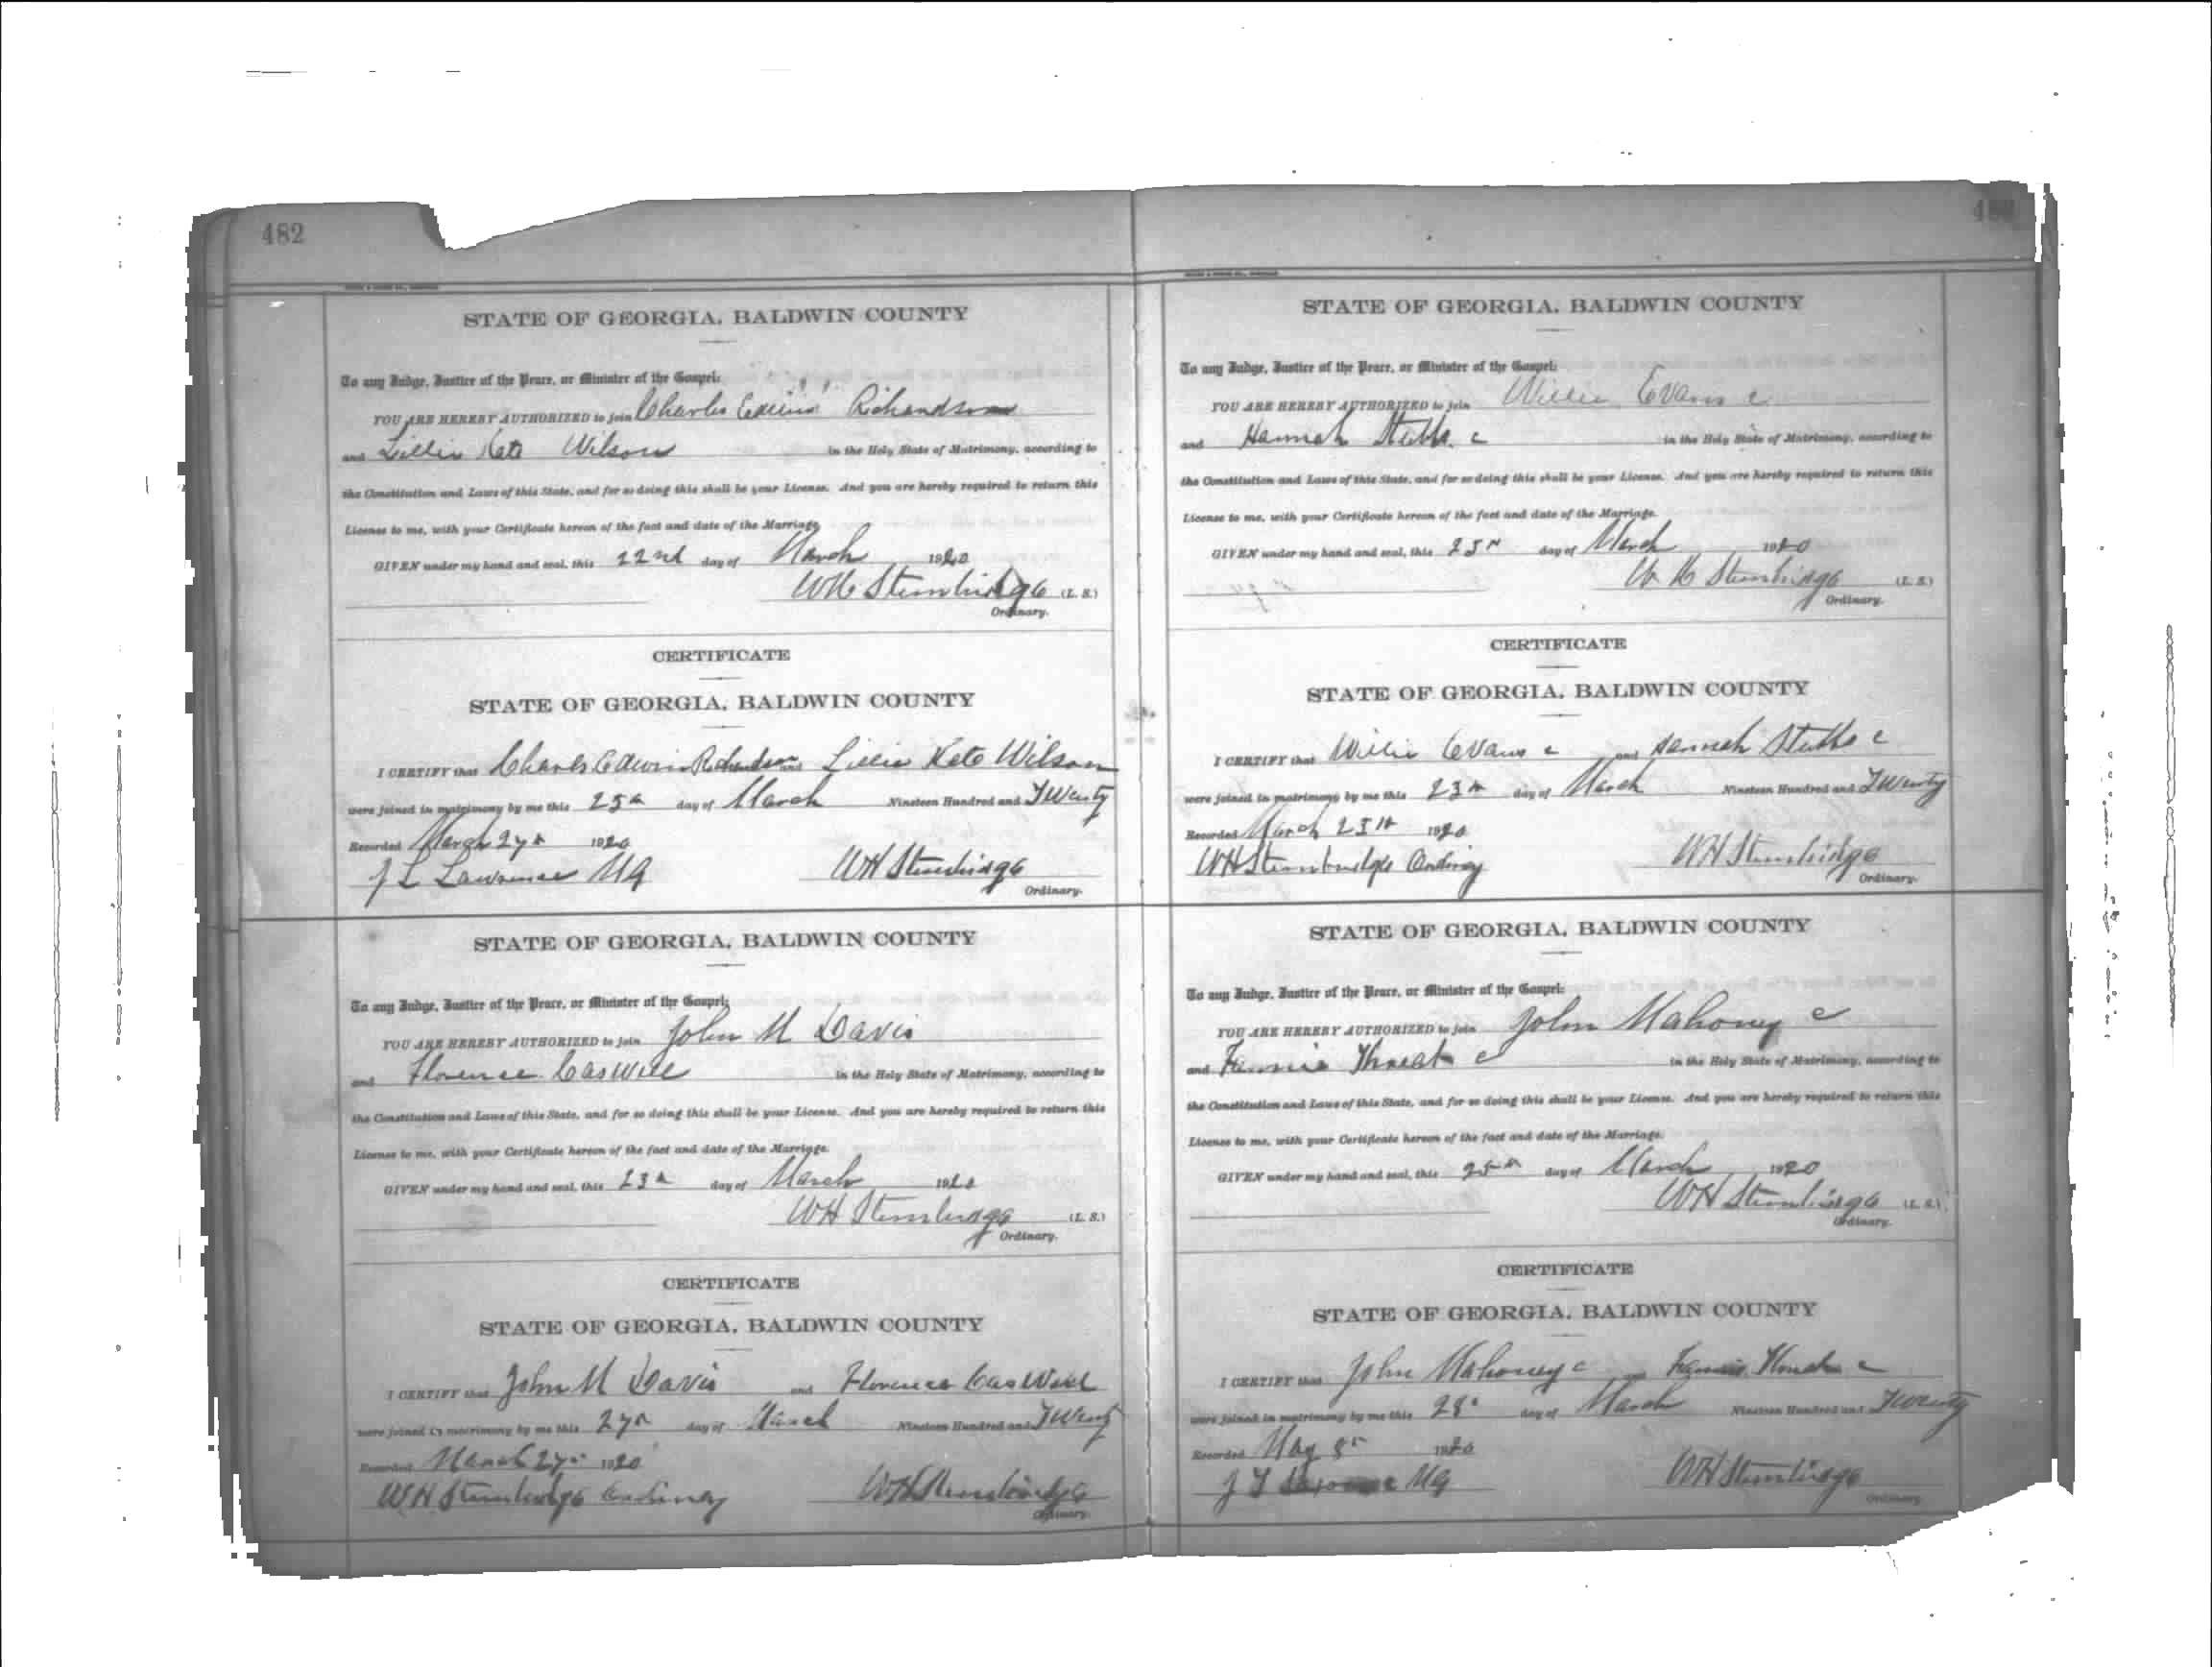 482
STATE OF GEORGIA, BALDWIN COUNTY
To any Judge, Justice of the Peace, or Minister of the Gospel:
YOU ARE HEREBY AUTHORIZED to join Charles Edwin Richardson
and Lillie Kate Wilson in the Holy State of Matrimony, according to
the Constitution and Laws of this State, and for so doing this shall be your License. And you are hereby required to return this
License to me, with your Certificate hereon of the fact and date of the Marriage.
GIVEN under my hand and seal, this 22nd day of March 1920
WH Stembridge (L. S.)
Ordinary.
CERTIFICATE
STATE OF GEORGIA, BALDWIN COUNTY
I CERTIFY that Charles Edwin Richardson and Lillie Kate Wilson
were joined in matrimony by me this 25th day of March Nineteen Hundred and Twenty
Recorded March 27th 1920
J L Lawrence MG WH Stembridge
Ordinary.
STATE OF GEORGIA, BALDWIN COUNTY
To any Judge, Justice of the Peace, or Minister of the Gospel:
YOU ARE HEREBY AUTHORIZED to join John M Davis
and Florence Caswell in the Holy State of Matrimony, according to
the Constitution and Laws of this State, and for so doing this shall be your License. And you are hereby required to return this
License to me, with your Certificate hereon of the fact and date of the Marriage.
GIVEN under my hand and seal, this 23rd day of March 1920
WH Stembridge (L. S.)
Ordinary.
CERTIFICATE
STATE OF GEORGIA, BALDWIN COUNTY
I CERTIFY that John M Davis and Florence Caswell
were joined in matrimony by me this 27th day of March Nineteen Hundred and Twenty
Recorded March 27th 1920
WH Stembridge Ordinary WH Stembridge
Ordinary.
STATE OF GEORGIA, BALDWIN COUNTY
To any Judge, Justice of the Peace, or Minister of the Gospel:
YOU ARE HEREBY AUTHORIZED to join Willie Evans c
and Hannah Stubbs c in the Holy State of Matrimony, according to
the Constitution and Laws of this State, and for so doing this shall be your License. And you are hereby required to return this
License to me, with your Certificate hereon of the fact and date of the Marriage.
GIVEN under my hand and seal, this day of March 1920
W H Stembridge (L. S.)
Ordinary.
CERTIFICATE
STATE OF GEORGIA, BALDWIN COUNTY
I CERTIFY that Willie Evans c and Hannah Stubbs c
were joined in matrimony by me this day of March Nineteen Hundred and Twenty
Recorded March 1920
WH Stembridge Ordinary WH Stembridge
Ordinary.
STATE OF GEORGIA, BALDWIN COUNTY
To any Judge, Justice of the Peace, or Minister of the Gospel:
YOU ARE HEREBY AUTHORIZED to join John Mahoney c
and Fannie Threat c in the Holy State of Matrimony, according to
the Constitution and Laws of this State, and for so doing this shall be your License. And you are hereby required to return this
License to me, with your Certificate hereon of the fact and date of the Marriage.
GIVEN under my hand and seal, this 25th day of March 1920
WH Stembridge (L. S.)
Ordinary.
CERTIFICATE
STATE OF GEORGIA, BALDWIN COUNTY
I CERTIFY that John Mahoney c and Fannie c
were joined in matrimony by me this 28 day of March Nineteen Hundred and Twenty
Recorded May 8th 1920
MG WH Stembridge
Ordinary.